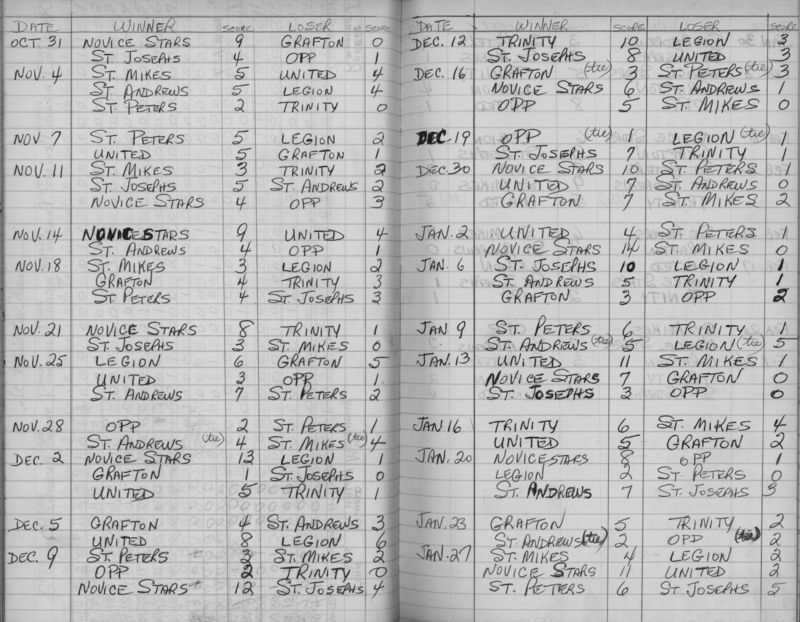 DATE WINNER SCORE LOSER SCORE
OCT 31 NOVICE STARS 9 GRAFTON 0
ST. JOSEPHS 4 OPP 1
NOV. 4 ST. MIKES 5 UNITED 4
ST. ANDREWS 5 LEGION 4
ST. PETERS 2 TRINITY 0
NOV. 7 ST. PETERS 5 LEGION 2
UNITED 5 GRAFTON 1
NOV. 11 ST. MIKES 3 TRINITY 2
ST. JOSEPHS 5 ST. ANDREWS 2
NOVICE STARS 4 OPP 3
NOV. 14 NOVICE STARS 9 UNITED 4
ST. ANDREWS 4 OPP 1
NOV. 18 ST. MIKES 3 LEGION 2
GRAFTON 4 TRINITY 3
ST. PETERS 4 ST. JOSEPHS 3
NOV. 21 NOVICE STARS 8 TRINITY 1
ST. JOSEPHS 3 ST. MIKES 0
NOV. 25 LEGION 6 GRAFTON 5
UNITED 3 OPP 1
ST. ANDREWS 7 ST. PETERS 2
NOV. 28 OPP 2 ST. PETERS 1
ST. ANDREWS (tie) 4 ST. MIKES (tie) 4
DEC. 2 NOVICE STARS 13 LEGION 1
GRAFTON 1 ST. JOSEPHS 0
UNITED 5 TRINITY 1
DEC. 5 GRAFTON 4 ST. ANDREWS 3
UNITED 8 LEGION 6
DEC. 9 ST. PETERS 3 ST. MIKES 2
OPP 2 TRINITY 0
NOVICE STARS 12 ST. JOSEPHS 4
DATE WINNER SCORE LOSER SCORE
DEC. 12 TRINITY 10 LEGION 2
ST. JOSEPHS 8 UNITED 3
DEC. 16 GRAFTON (tie) 3 ST. PETERS (tie) 3
NOVICE STARS 6 ST. ANDREWS 1
OPP 5 ST. MIKES 0
DEC. 19 OPP (tie) 1 LEGION (tie) 1
ST. JOSEPHS 7 TRINITY 1
DEC. 30 NOVICE STARS 10 ST. PETERS 1
UNITED 7 ST. ANDREWS 0
GRAFTON 7 ST. MIKES 2
JAN. 2 UNITED 4 ST. PETERS 1
NOVICE STARS 14 ST. MIKES 0
JAN. 6 ST. JOSEPHS 10 LEGION 1
ST. ANDREWS 5 TRINITY 1
GRAFTON 3 OPP 2
JAN 9 ST. PETERS 6 TRINITY 1
ST. ANDREWS (tie) 5 LEGION (tie) 5
JAN. 13 UNITED 11 ST. MIKES 1
NOVICE STARS 7 GRAFTON 0
ST. JOSEPHS 3 OPP 0
JAN 16 TRINITY 6 ST. MIKES 4
UNITED 5 GRAFTON 2
JAN. 20 NOVICE STARS 8 OPP 1
LEGION 2 ST. PETERS 0
ST. ANDREWS 7 ST. JOSEPHS 3
JAN. 23 GRAFTON 5 TRINITY 2
ST. ANDREWS (tie) 2 OPP (tie) 2
JAN. 27 ST. MIKES 4 LEGION 2
NOVICE STARS 11 UNITED 2
ST. PETERS 6 ST. JOSEPHS 5